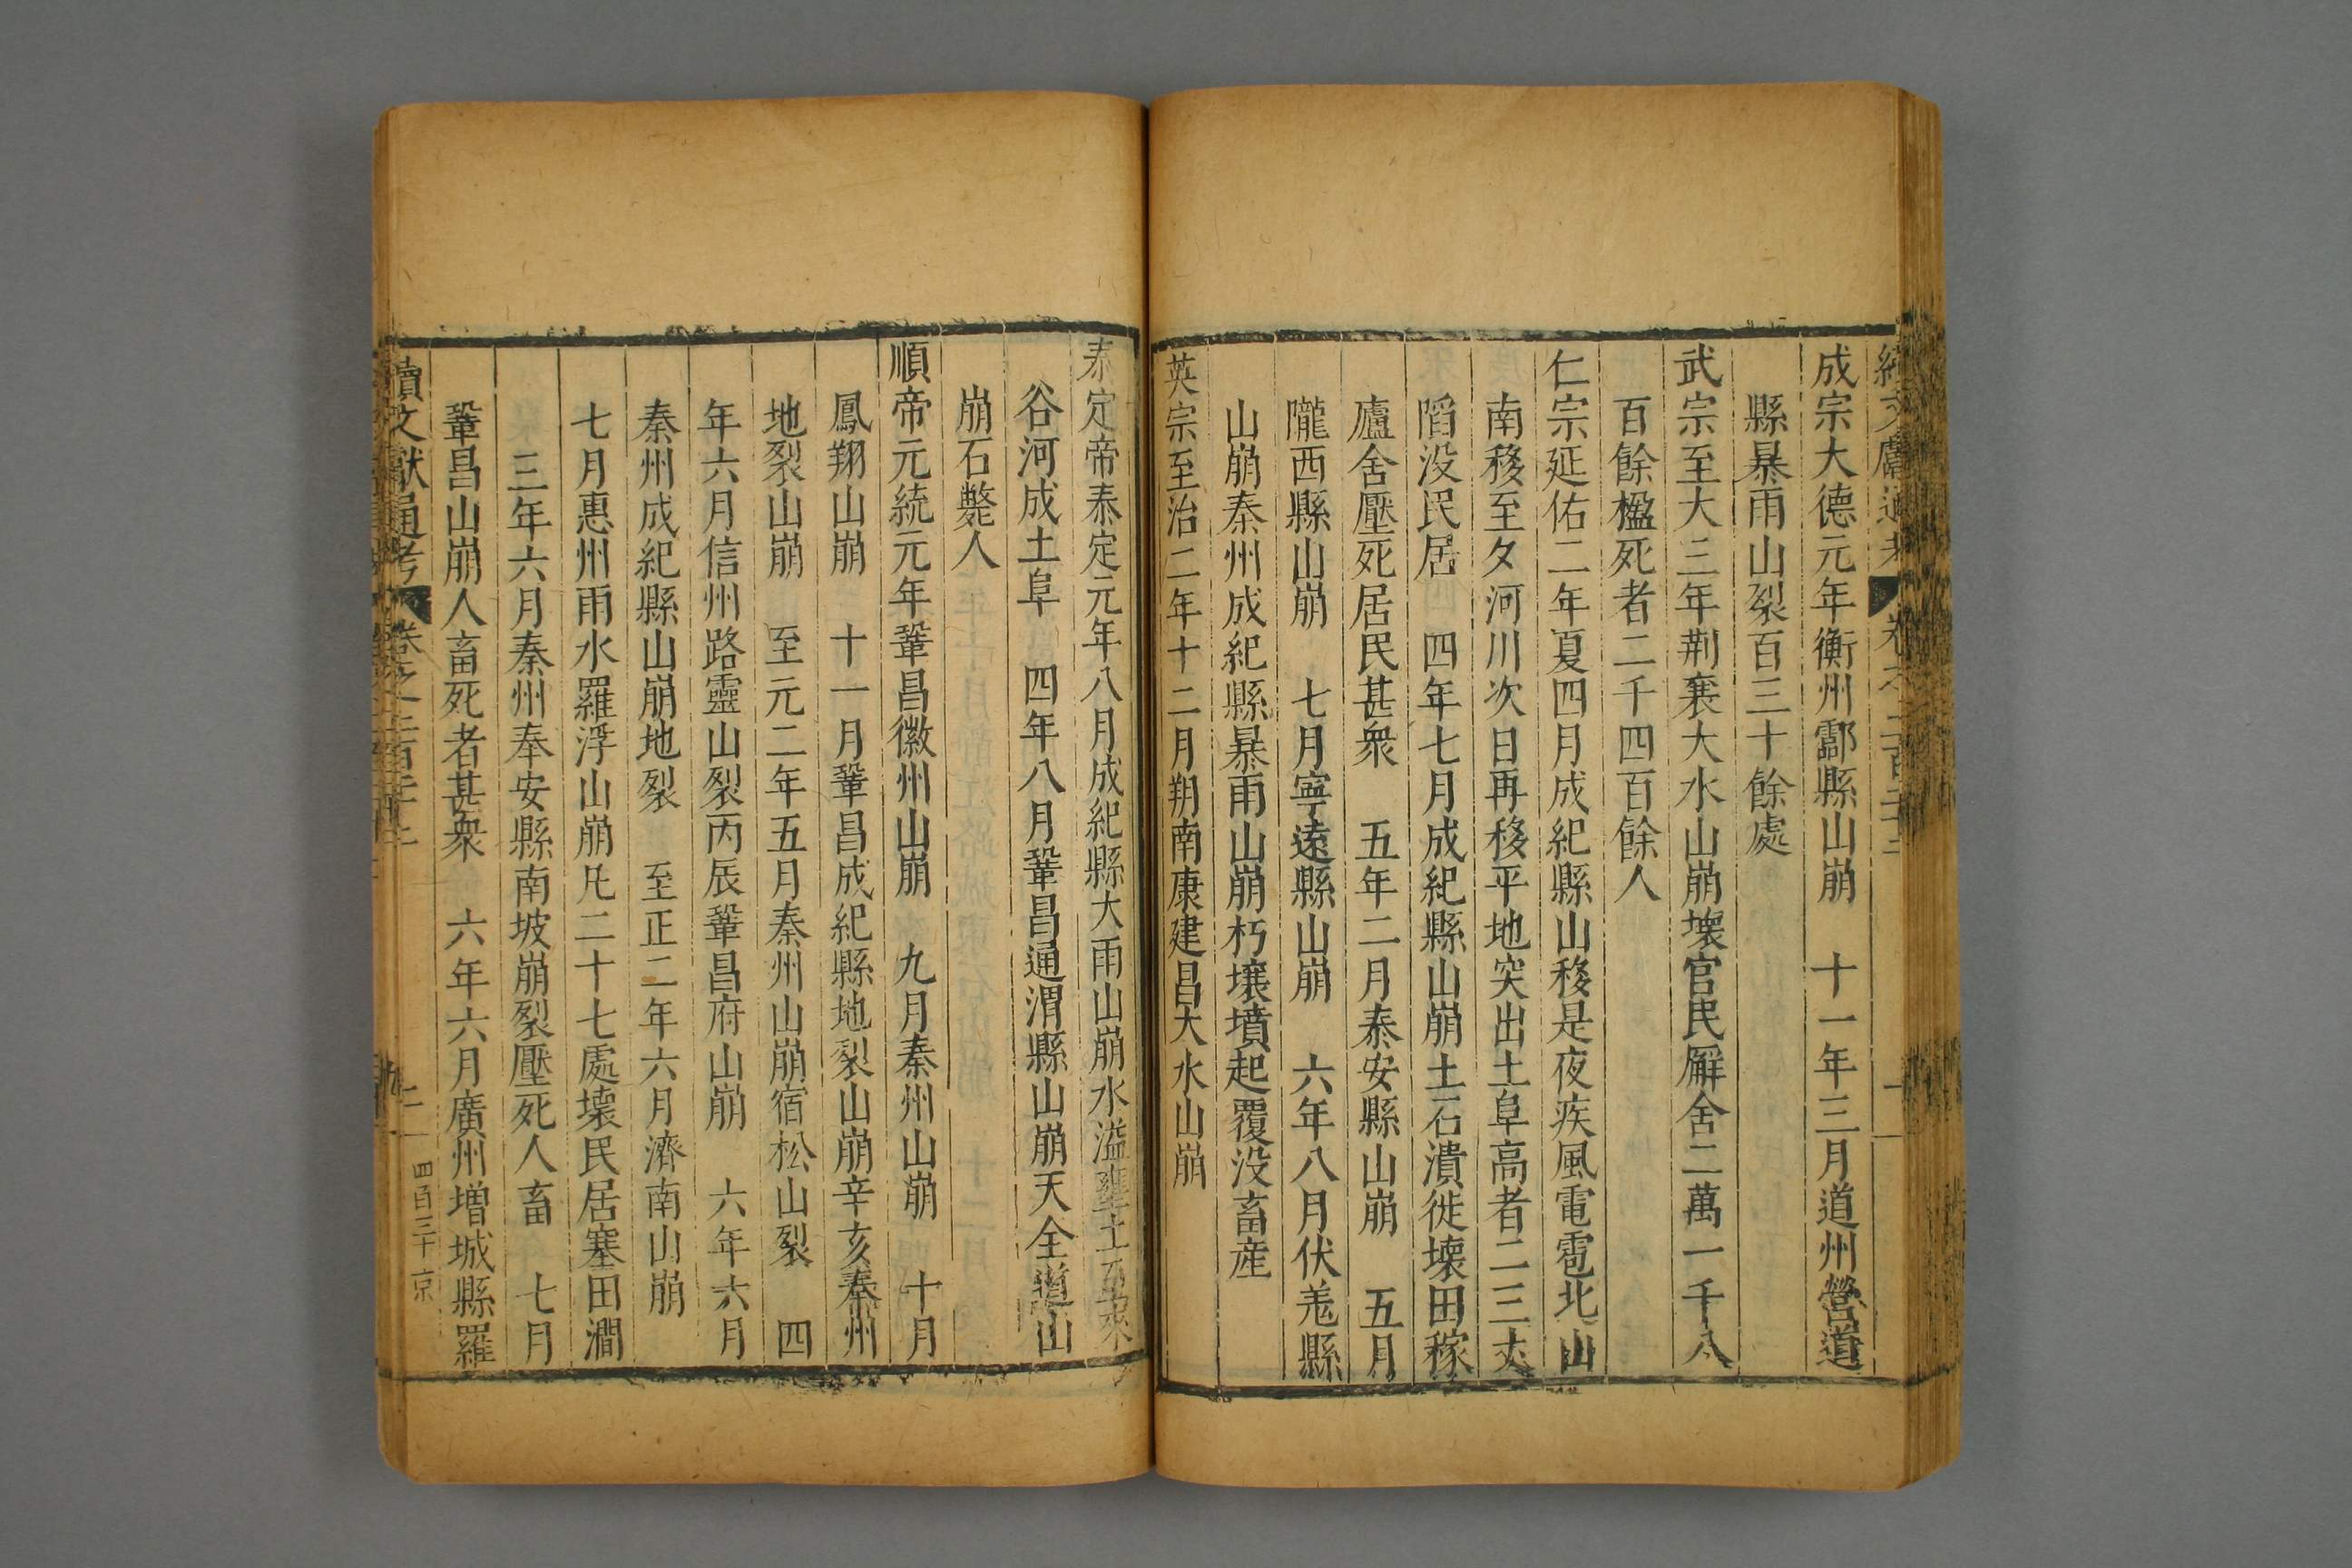 續文獻通考 卷之二百二十二
成宗大德元年衡州酃縣山崩　十一年三月道州營道
縣暴雨山裂百三十餘處
武宗至大三年荆襄大水山崩壞官民廨舍二萬一千八
百餘楹死者二千四百餘人
仁宗延佑二年夏四月成紀縣山移是夜疾風電雹北山
南移至夕河川次日再移平地突出土阜高者二三丈
陷没民居　四年七月成紀縣山崩土石潰徙壊田稼
廬舍壓死居民甚衆　五年二月泰安縣山崩　五月
隴西縣山崩　七月寧遠縣山崩　六年八月伏羗縣
山崩秦州成紀縣暴雨山崩朽壤墳起覆没畜産
英宗至治二年十二月朔南康建昌大水山崩
泰定帝泰定元年八月成紀縣大雨山崩水溢壅土至來
谷河成土阜　四年八月鞏昌通渭縣山崩天全道山
崩石斃人
順帝元統元年鞏昌徽州山崩　九月秦州山崩　十月
鳳翔山崩　十一月鞏昌成紀縣地裂山崩辛亥秦州
地裂山崩　至元二年五月秦州山崩宿松山裂　四
年六月信州路靈山裂丙辰鞏昌府山崩　六年六月
秦州成紀縣山崩地裂　至正二年六月濟南山崩
七月惠州雨水羅浮山崩凡二十七處壊民居塞田澗
三年六月秦州奉安縣南坡崩裂壓死人畜　七月
鞏昌山崩人畜死者甚衆　六年六月廣州増城縣羅
續文獻通考 卷之二百二十二
四百三十 京